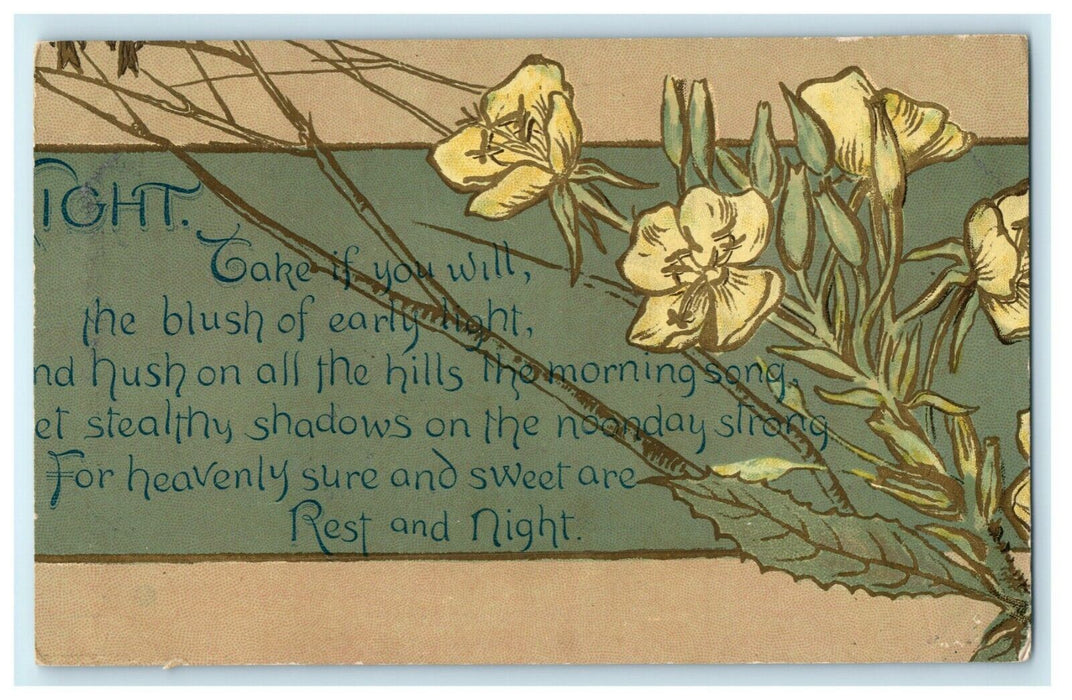 IGHT.
Take if you will,
the blush of early light,
nd hush on all the hills the morning song,
et stealthy shadows on the noonday strong
For heavenly sure and sweet are
Rest and Night.